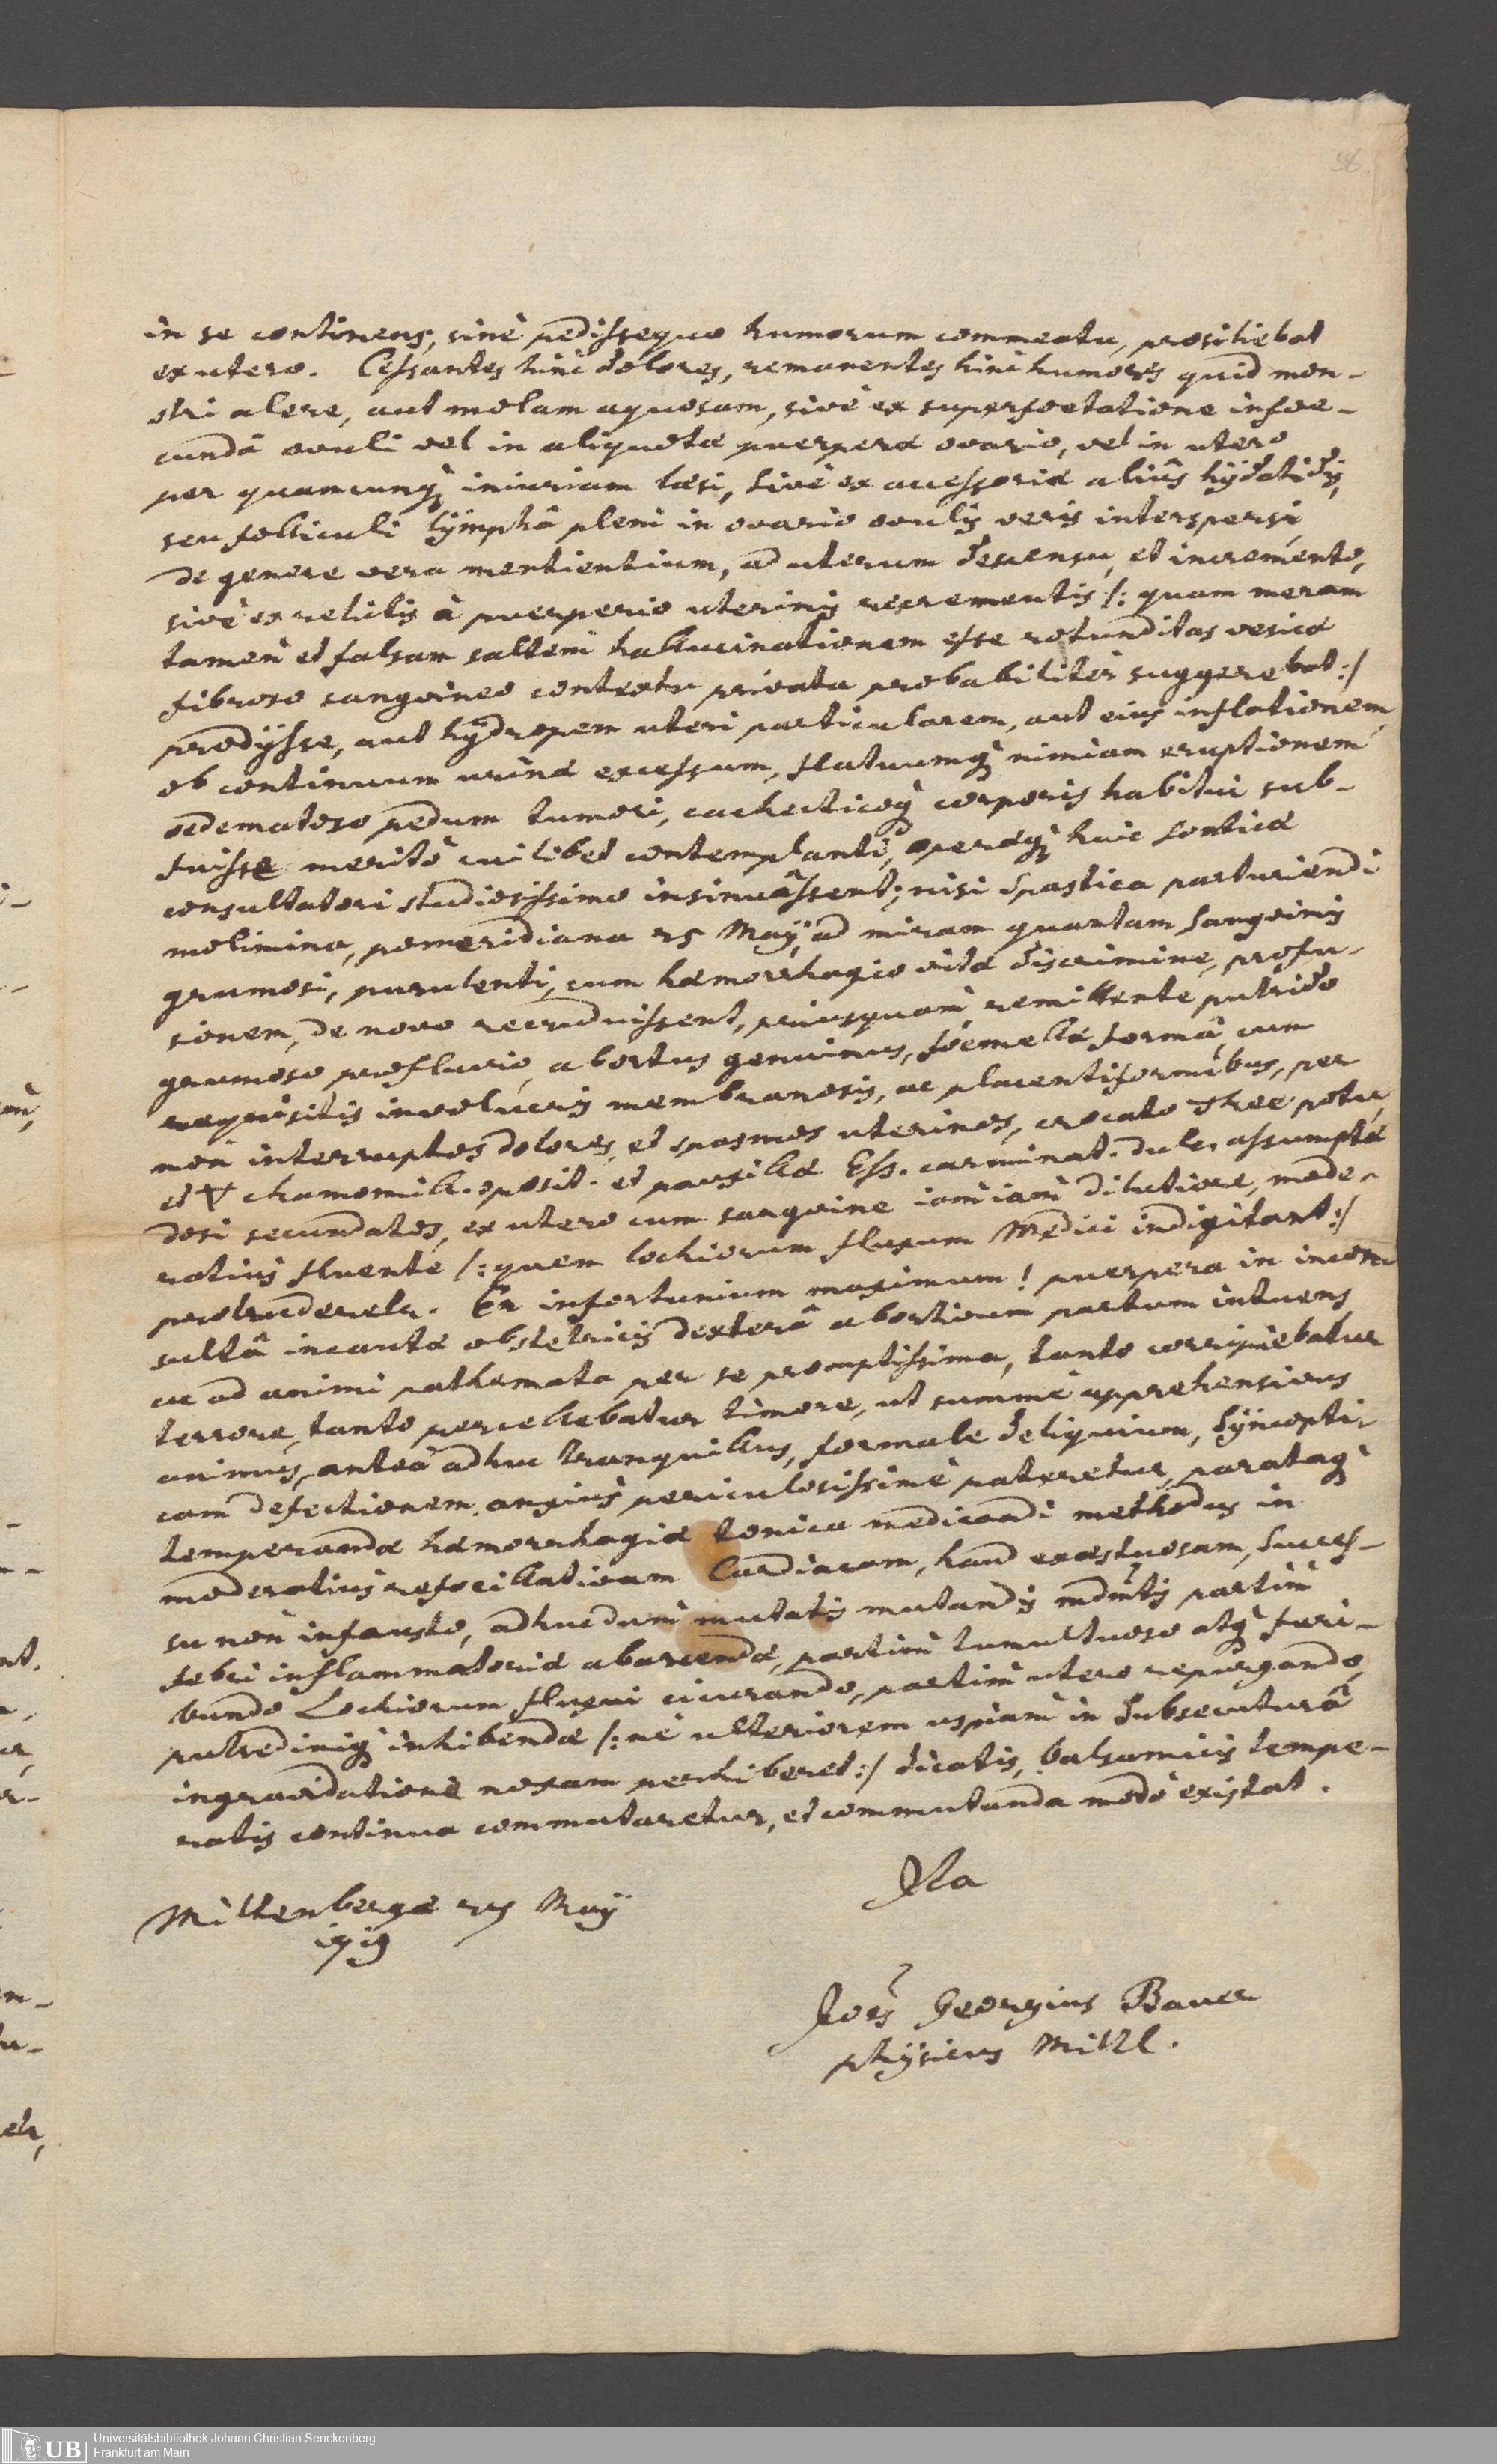 98
in se continens, sinè pedissequo humorum commeatu, prosiliebat
ex utero. Cessantes hinc dolores, remanentes hinc humores quid mon-
stri alere, aut molam aquosam, sivè ex superfoetatione infoe-
cundâ ovuli vel in aliquotæ puerperæ ovario, vel in utero
per quamcunq iniuriam læsi, sivè ex accessoriæ alius hÿdatidis,
seu folliculi lÿmphâ pleni in ovario ovulis veris interspersi,
de genere vera mentientium, ad uterum descensu, et incremento,
sivè ex relictis à puerperio uterinis recrementis /: quam meram
tamen et falsam saltem hallucinationem esse rotunditas vesicæ
fibroso sanguineo contextu privatæ probabilitèr suggerebat :/
prodÿsse, aut hÿdropem uteri particularem, aut eius inflationem,
ob continuum urinæ excessum, flatuumq nimiam eruptionem
oedematoso pedum tumori, cachecticoq corporis habitui sub-
fuisse meritò cuilibet contemplanti, operæq huic sonticæ
consultatori studiosissimo insinuâssent; nisi spastica parturiendi
molimina, pomeridiana 25 Maÿ, ad miram quantam sanguinis
grumosi, purulenti, cum hæmorrhagico vitæ discrimine, profu-
sionem, de novo recruduissent, priusquam remittente putrido
grumoso profluvio, abortus genuinus, foemellæ formâ, cum
requisitis involucris membranosis, ac placentiformibus, per
non interruptos dolores, et spasmos uterinos, crocato Thee potu,
et chamomill. sposit. et pauxillæ Ess. carminat. dulc. assumptæ
dosi secundatos, ex utero cum sanguine iam iam dilutiore, mode-
ratius fluente /: quem lochiorum fluxum Medici indigitant :/
protruderetur. En infortunium maximum! puerpera in incon-
sultâ incautæ obstetricis dexterâ abortivum partum intuens,
ac ad animi pathemata per se promptissima, tanto corripiebatur
terrore, tanto percellebatur timore, ut summè apprehensivus
animus, anteà adhuc tranquillus, formale deliquium, Sÿncopti-
cam defectionem anxius periculosissimè pateretur, parataq
temperandæ hæmorrhagiæ tonica medicandi methodus in
moderatius refocillativam Cardiacam, haud exæstuosam, succes-
su non infausto, adhucdum mutatis mutandis mdmtis partim
febri inflammatoriæ abarcendæ, partim tumultuoso atq furi-
bundo Lochiorum fluxui cicurando, partim utero repurgando,
putrediniq inhibendæ /: nè ulteriorem uspiam in subsecuturâ
ingravidatione noxam perhiberet :/ dicatis, balsamicis tempe-
ratis continua commutaretur, et commutanda modò existat.
Ita
Miltenbergæ 27 Maÿ
1719
Joes Georgius Bauer
phÿsicus Miltl.
UB
Universitätsbibliothek Johann Christian Senckenberg
Frankfurt am Main